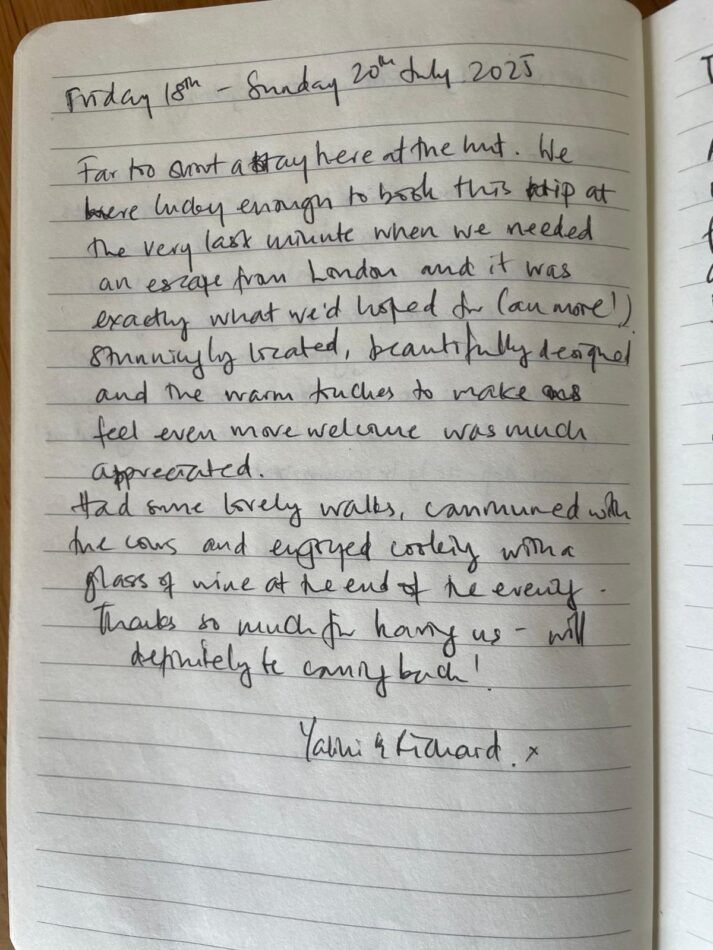 Friday 18th – Sunday 20th July 2025
Far too short a stay here at the hut. We
were lucky enough to book this trip at
the very last minute when we needed
an escape from London and it was
exactly what we'd hoped for (an more!)
Stunningly located, beautifully designed
and the warm touches to make us
feel even more welcome was much
appreciated.
Had some lovely walks, communed with
the cows and enjoyed cooking with a
glass of wine at the end of the evening.
Thanks so much for having us – will
definitely be coming back!
& Richard. x